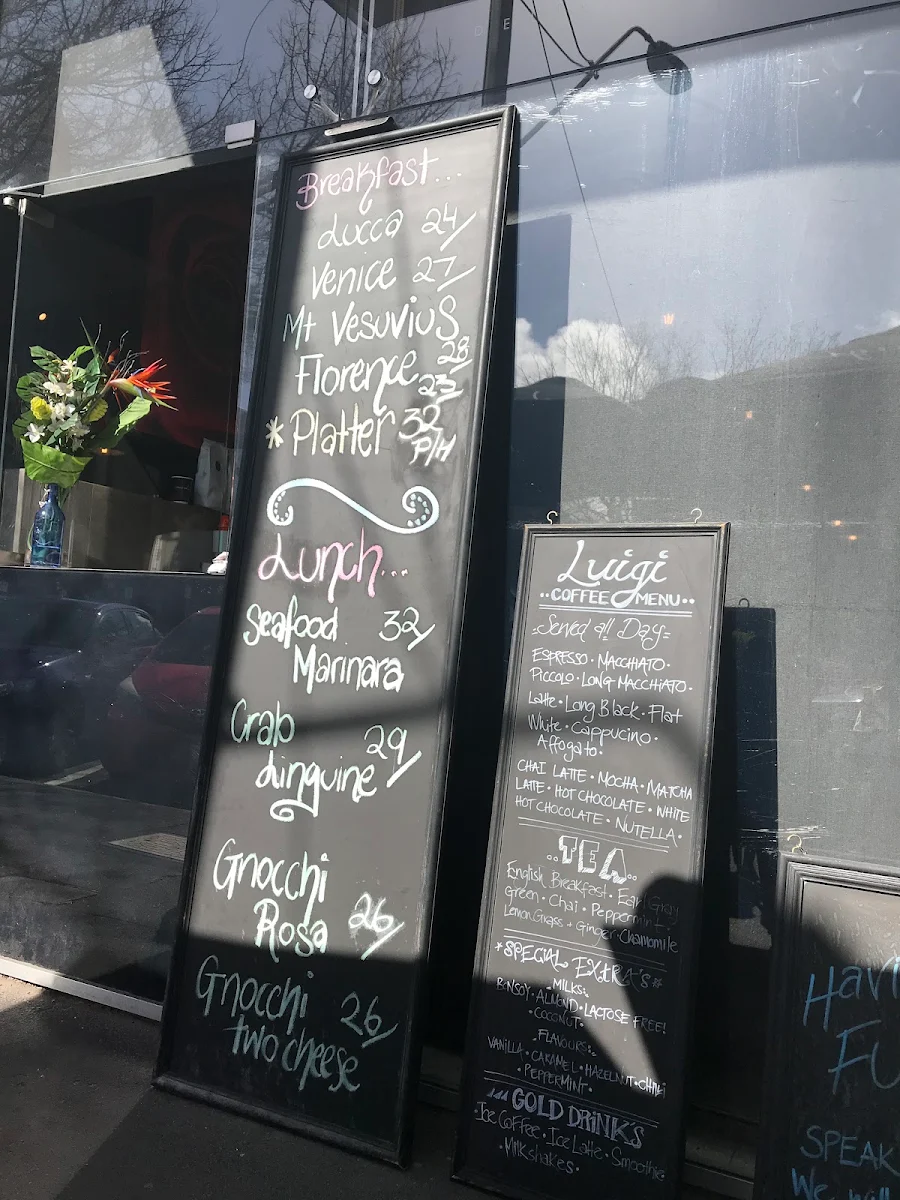 Breakfast...
Lucca 24/
Venice 27/
Mt Vesuvius
28
Florence 23/
*Platter 32
P/H
Lunch...
Seafood 32/
Marinara
Crab 29/
Linguine
Gnocchi
Rosa 26/
Gnocchi 26/
two cheese
Luigi
··COFFEE MENU··
-Served all Day-
ESPRESSO · MACCHIATO·
PICCOLO · LONG MACCHIATO·
Latte · Long Black · Flat
White · Cappucino·
Affogato·
CHAI LATTE · MOCHA · MATCHA
LATTE · HOT CHOCOLATE · WHITE
HOT CHOCOLATE · NUTELLA·
··TEA··
English Breakfast · Earl Gray
Green · Chai · Peppermint ·
LemonGrass + Ginger · Chamomile
*SPECIAL EXTRA'S*
·MILKS:
BONSOY · ALMOND · LACTOSE FREE!
·COCONUT·
·FLAVOURS:
VANILLA · CARAMEL · HAZELNUT · CHAI
·PEPPERMINT·
COLD DRINKS
·Ice Coffee · Ice Latte · Smoothie·
·Milkshakes·
Havi
Fu
SPEAK
We will